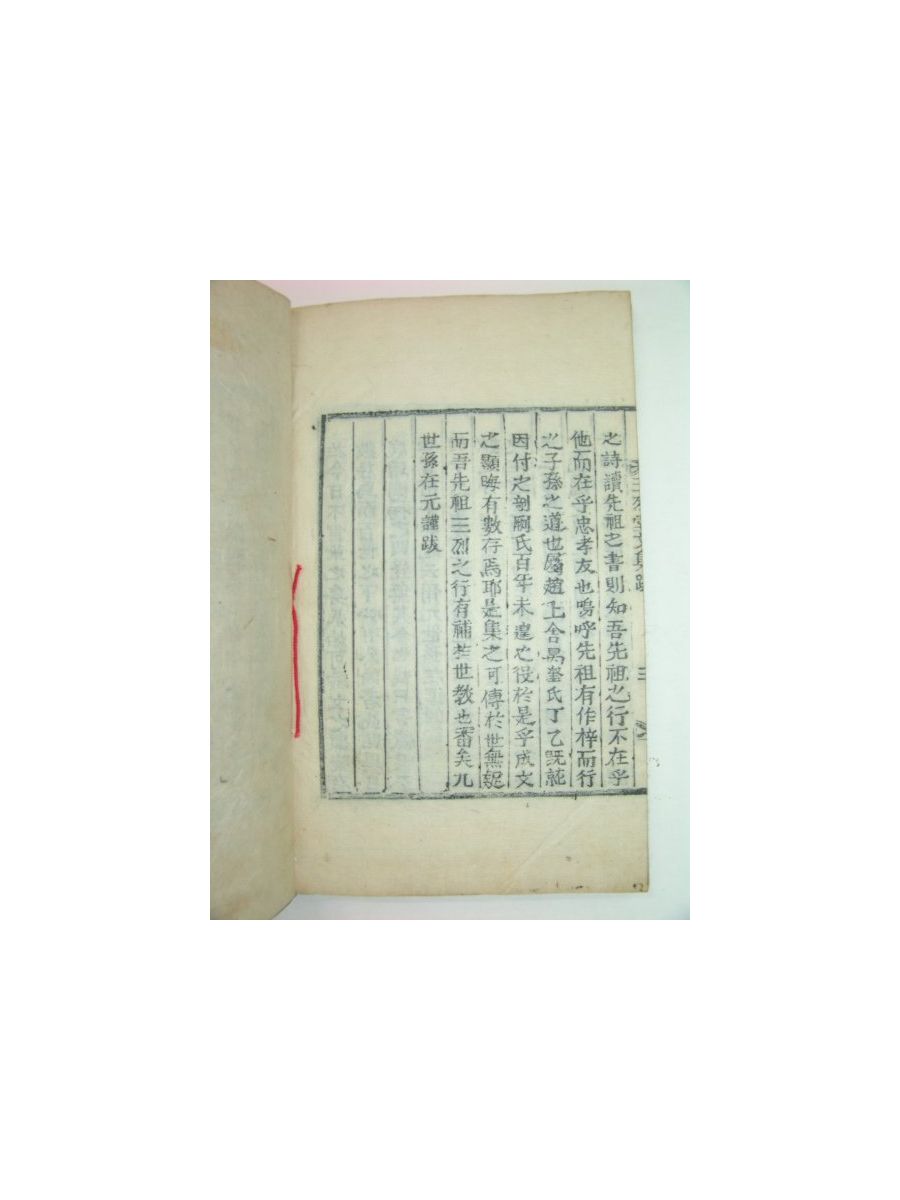 三烈堂文集跋
三
之詩讀先祖之書則知吾先祖之行不在乎
他而在乎忠孝友也嗚呼先祖有作梓而行
之子孫之道也屬趙上舍昺奎氏丁乙既訖
因付之剞劂氏百年未遑之役於是乎成文
之顯晦有數存焉耶是集之可傳於世無疑
而吾先祖三烈之行有補於世敎也審矣九
世孫在元謹跋